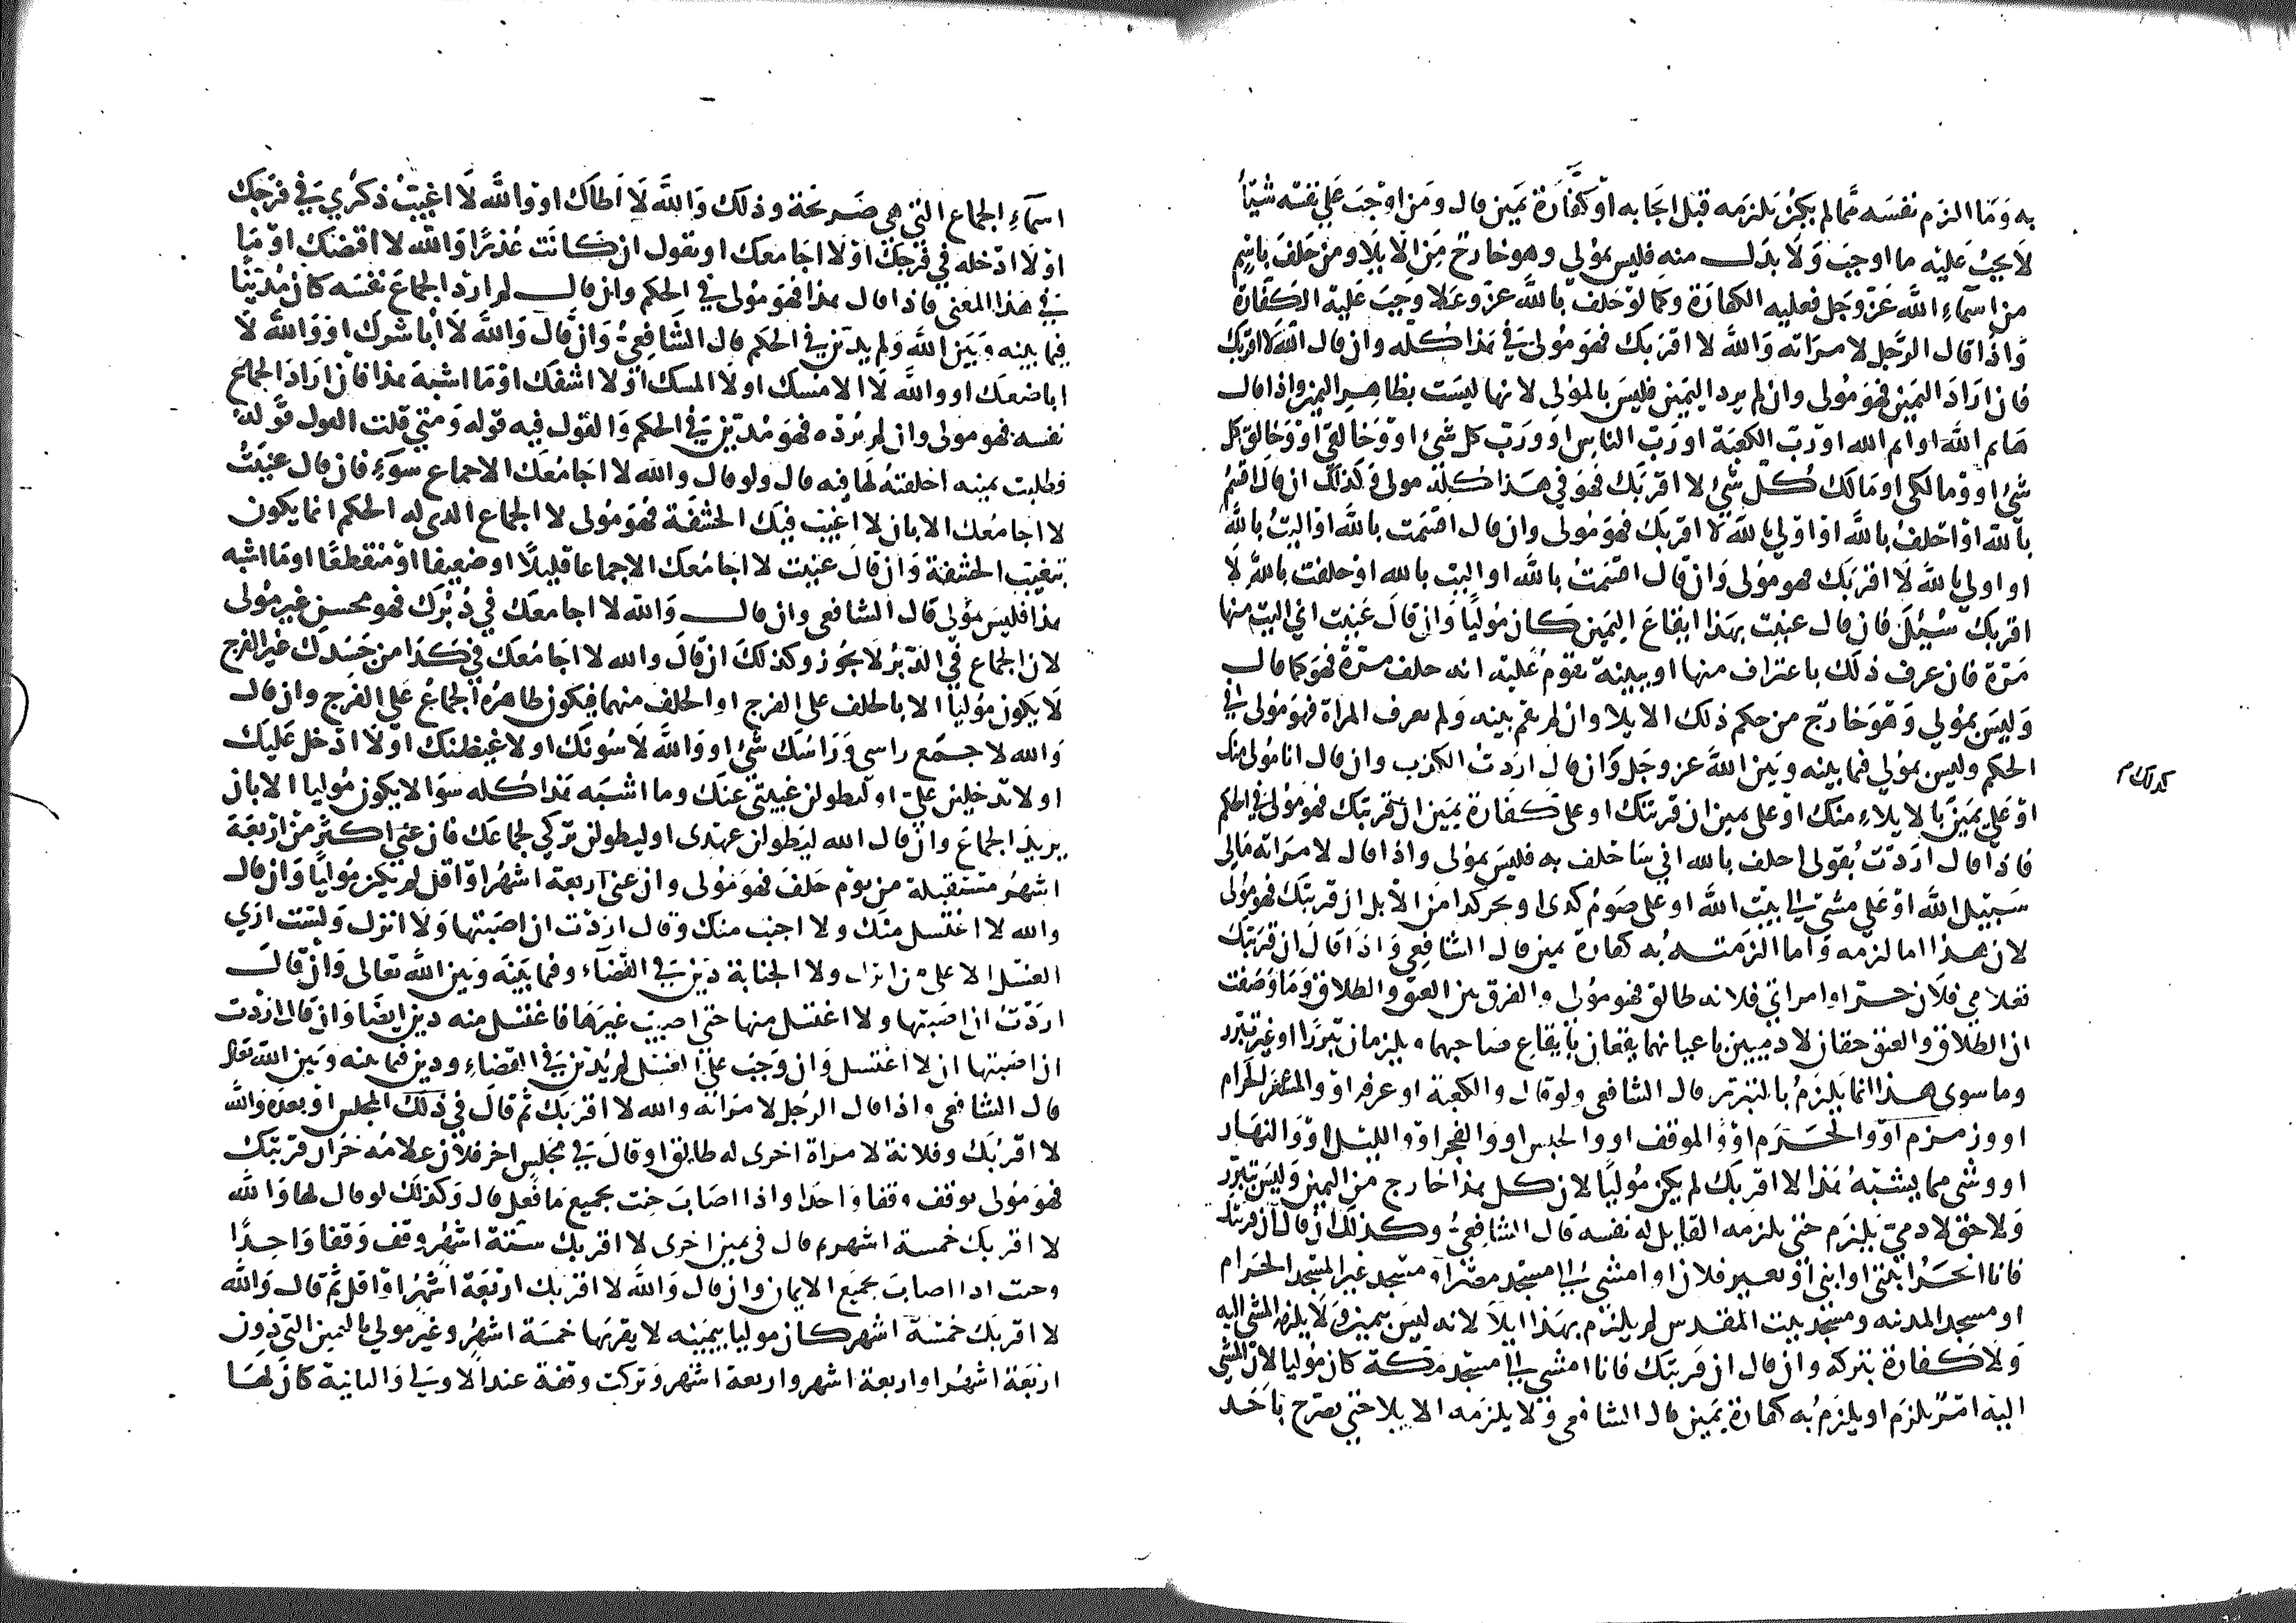 به وَمَا الزم نفسَه ممّا لم يكن يلزمه قبل ايجابه او كفّارة يمين قال ومَن اوْجَبَ عَلي نفسه شئًا
لا يجبُ عَليْه ما اوجَبَ وَلا بدَل منه فليس بمؤلي وهو خارجٌ مِنَ الايلاء ومنْ حَلفَ باسْمٍ
من اسمآءِ اللَّه عَزّ وجَل فعليه الكفارَة وكما لوْ حَلفَ باللَّه عزّ وعَلا وَجبَ عَليْه الكَفّارة
وَاذَا قال الرّجل لامرَاته وَاللَّه لا اقرَبك فهوَ مُؤلي في هَذا كُلّه وان قال اللَّه لا اقربك
فان ارَادَ اليَمين فهوَ مُولى وان لم يرد اليَمين فليسَ بالمؤلِي لانها ليسَت بظاهِر اليمين واذا قال
هَايم اللَّه او ايم الله اوْ رَبّ الكعبَة اورَبّ الناس اوَ ورَبّ كل شئ اوْ وَخالقي اوْ وَخَالِق كل
شئ او وَمالكي اومَالك كُلّ شئ لا اقربَك فهوَ في هَذا كُلّه مولى وَكَذلك ان قال اقسمُ
باللَّه اوْ احْلفُ باللَّه اوْ اوْلي باللَّه لا اقربَك فهوَ مُولى وان قال اقسَمت باللَّه اوْ اليتُ باللَّه
او اولي باللَّه لَا اقربَك فهو مولى وَان قال اقسَمتُ باللَّه او اليت بالله اوْ حلفت باللَّه لَا
اقربَك سُئِلَ فان قال عنيت بهَذا ايقاعَ اليَمين كان مُوليًا وَان قالَ عَنيت اني اليت منها
مَرّة فان عرف ذلك باعتراف منها او ببينة تقومُ عَليْه انه حلف مرّة فهوَ كما قال
وَليسَ بمؤلي وَهوَ خارج من حكم ذلك الايلا وان لم تقم بينه وَلم تعرف المراة فهوَ مُولى في
الحكم وليس بمؤلي فيما بينه وبَين اللَّه عز وجَل وَان قال ارَدتُ الكذب وان قال انا مُولى منك
اوْ عَلي يَمينٌ بالايلاءِ منك اوْ على يمين ان قربتك او على كَفارة يمين ان قربتك فهوَ مُؤلٍ في الحكم
فاذا قال ارَدْت بُقولي احلف بالله اني سَاحلف به فليسَ بمولى واذا قال لامرَاته مَالي
سَبيل اللَّه اوْ عَلي مشي الى بيت اللَّه او على صَوْم كدى او نحر كدا مَن الابل ان قربتك فهو مُولى
لان هذا اما لزمه وَاما الزَمته به كفارة يمين قال الشافِعي وَاذَا قالَ ان قربَتك
فغلامي فلَان حرّ او امراتي فلانه طالق فهو مؤلي والفرق بين العتق والطلاق وَمَا وَصَفت
ان الطلاق والعتق حقان لادميين باعيانهما يقعان بايقاع صَاحبهما ويلزمان تبرّرًا او غير تبرّر
وما سوى هذا انما يَلزمُ بالتبرر قال الشافعي ولو قال والكعبَة او عرفة اوْ والمشعَر الحرام
او وزمزم اوْ والحَرم اوْ وَالموقف او والخمس او والفجر اوْ والليْل اوْ وَالنهَار
او وشئ مما يشبهُ هَذا لا اقربَك لم يكن مُوليًا لان كل هذا خارج منَ اليمين وَليسَ بتبرّر
وَلا حَق لادمي يَلزم حَتى يلزمه القايل له نفسه قال الشافِعيُ وكذلك ان قال ان قربتك
فانا انحَرُ ابنتي او ابني اوْ بعير فلان اوْ امشي الى مسجد مصر اوْ مسْجد غير المسجد الحَرام
او مسجد المدينه ومسجد بيت المقدس لم يلزم بهَذا ايلاَ لانه ليسَ بيمين وَلَا يلزمه المشي اليه
وَلَا كَفارة بتركه وان قال ان قَربتك فانا امشي الى مسْجد مَكة كان مُوليا لان المشي
اليه امرٌ يلزم او يلزمُ به كفارة يَمين قال الشافعي وَلا يلزمه الايلا حَتى يصرح بأحَد
كذلك م
اسمآءِ الجماع التي هي صَريحَة وذلك وَاللَّه لَا اَطأكَ اوْ واللَّه لَا اغيبُ ذكري في فَرْجك
اوْ لَا ادْخله في فَرجك اوْ لَا اجَامعك او يقول ان كَانَت عُذرًا وَاللَّه لا اقتضك اوْ مَا
في هَذا المعني فاذا قال هذا فهوَ مُولى في الحكم وان قال لم ارِد الجماعَ نفسَه كان مُديّنًا
فيما بينه وَبَين اللَّه وَلم يدَيّن في الحكم قال الشافِعيُ وَان قَالَ وَاللَّه لَا اُباشرك اوْ وَاللَّه لَا
اباضعك او واللَّه لَا الامسك او لَا المسك اوْ لا ارشفك اوْ مَا اشبهَ هذا فان ارَادَ الجماع
نفسه فهو مولى وان لم يُرِدْه فهوَ مُديّن في الحكم وَالقول فيه قوله وَمتي قلت القول قوْله
فطلبت يمينه احلفتهُ لهَا فيه قال ولو قال والله لا اجَامعَك الا جماع سوءٍ فان قال عنيَتُ
لا اجامُعك الا بان لا اغيّب فيك الحشفَة فهُوَ مُولى لا الجماع الذي له الحكم انما يكون
بتغيّب الحشفة وَان قالَ عَنيت لا اجَامُعك الا جماعا قليلًا او ضعيفا اوْ منقطعًا اومَا اشبه
هذا فليسَ بمؤلي قال الشافعي وان قال وَالله لا اجامعَك في دُبُرك فهو محسن غير مُولى
لان الجماع في الدبُر لا يجُوز وكذلك ان قالَ والله لا اجَامُعك في كَذا من جَسَدك غير الفرج
لَا يكون مُوليًا الا بالحلف على الفرج او الحلف منهما فيكون ظاهرُه الجماعُ عَلي الفرج وان قال
وَالله لا جمَع راسي وَرَاسَك شَئ او وَاللَّه لَاسُونَك او لاغيظنك اوْ لَا ادْخل عَليك
او لا تدخلين عليّ او ليطولن غيبتي عنَك وما اشبَه هَذا كله سَوَا لا يكَون مُوليا الا بان
يريدَ الجماعَ وان قال الله ليَطولن عهدى اوليطولن تركي لجماعك فان عَنى اكثر من اربَعَة
اشهُر مستقبلة من يوْم حَلفَ فهوَ مُولى وان عنى اربعة اشهُر اوْ اقل لم يَكن مُوليًا وَان قال
والله لا اغتسل منك ولا اجنب منك وقال ارَدْت ان اصَبتها وَلا انزل وَلست ارَي
الغسْل الا على من انزل ولا الجنابة دَيّن في القضَآء وفيما بَينه وَبين اللَّه تعالى وَان قالَ
ارَدْتُ ان اصَبتها ولا اغتسل منها حَتى اصيبُ غيرَهَا فاغتسل منه دين ايضًا وَان قال ارَدْت
ان اصَبتها ان لا اغتسل وَان وَجَبَ عَليّ الغسْل لم يُديَّن في القضاءِ ودين فيما بينه وبَين الله تعالى
قال الشافعي واذا قال الرجُل لامرَاته والله لا اقربَك ثمّ قالَ في ذلك المجلس اوْ بعدَه وَاللَّه
لا اقرُبَك وفلانة لامرَاة اخرى له طالق او قالَ في مجلس اخر فلان غلامُه حُرّ ان قربَتك
فهوَ مُولى يوقف وقفا وَاحدًا واذا اصَابَ حنث بجميع مَا فَعل قال وَكذلك لو قال لها وَاللَّه
لا اقربك خمسة اشهر ثم قال في يمين اخرى لا اقربك سِتّة اشهُر وقف وَقفا وَاحِدًا
وحنث اذا اصابَ بجميَع الايمان وان قال وَاللَّه لا اقربك اربَعَة اشهُر اوْ اقل ثمّ قال وَاللَّه
لا اقربَك خمسَة اشهر كان موليا بيمَينه لا يقربَها خمسَة اشهُر وغَير مولي باليمين التي دُون
اربَعَة اشهُر او اربعة اشهر واربعة اشهر وَتركت وقفة عند الاولي وَالثانية كانَ لهَا